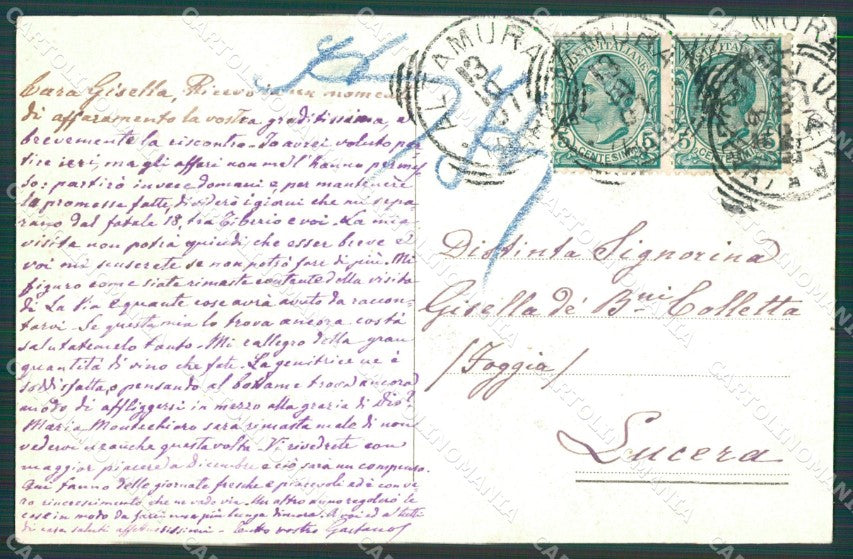 Cara Gisella, Ricevo in un momento
di affaramento la vostra graditissima, e
brevemente la riscontro. Io avrei voluto par
tire ieri, ma gli affari non me l'hanno permes
so: partirò invece domani e, per mantenere
la promessa fatta, dividerò i giorni che mi sepa
rano dal fatale 18, tra Tiberio e voi. La mia
visita non potrà quindi che esser breve e
voi mi scuserete se non potrò fare di più. Mi
figuro come siate rimaste contente della visita
di La Via e quante cose avrà avuto da raccon-
tarvi. Se questa mia lo trova ancora costà
salutatemelo tanto. Mi rallegro della gran
quantità di vino che fate. La genitrice ne è
soddisfatta, o pensando al bottame trova ancora
modo di affliggersi in mezzo alla grazia di Dio?
Maria Montechiaro sarà rimasta male di non
vedervi neanche questa volta. Vi rivedrete con
maggior piacere a Dicembre e ciò sarà un compenso.
Qui fanno delle giornate fresche e piacevoli ed è con vero
rincrescimento che ne vado via. Un altro anno regolerò le
cose in modo da farci una più lunga dimora. A voi ed a tutti
di casa saluti affettuosissimi - Tutto vostro Gaetano
ALTAMURA
POSTE ITALIANE
CENTESIMI 5
5 CENTESIMI 5
Distinta Signorina
Gisella de' B.ni Colletta
(Foggia)
Lucera
CARTOLINOMANIA